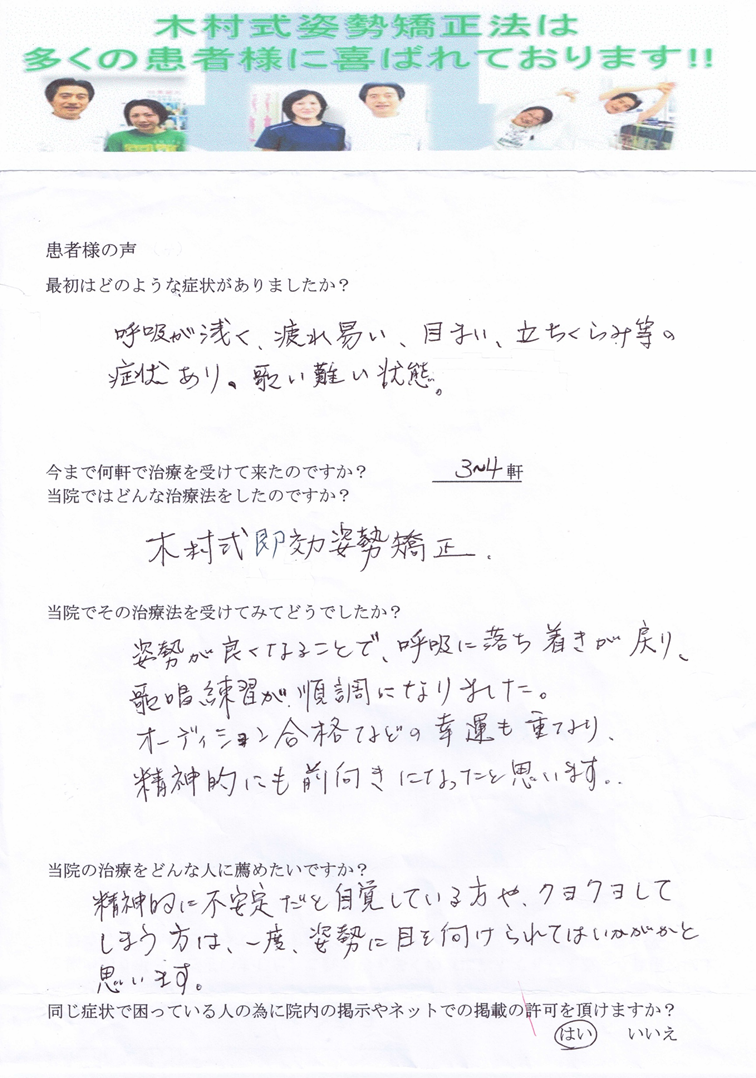 木村式姿勢矯正法は
多くの患者様に喜ばれております!!
患者様の声
最初はどのような症状がありましたか？
呼吸が浅く、疲れ易い、目まい、立ちくらみ等の
症状あり。歌い難い状態。
今まで何軒で治療を受けて来たのですか？ 3~4軒
当院ではどんな治療法をしたのですか？
木村式即効姿勢矯正、
当院でその治療法を受けてみてどうでしたか？
姿勢が良くなることで、呼吸に落ち着きが戻り、
歌唱練習が順調になりました。
オーディション合格などの幸運も重なり、
精神的にも前向きになったと思います。
当院の治療をどんな人に薦めたいですか？
精神的に不安定だと自覚している方や、クヨクヨして
しまう方は、一度、姿勢に目を向けられてはいかがかと
思います。
同じ症状で困っている人の為に院内の掲示やネットでの掲載の許可を頂けますか？
はい いいえ